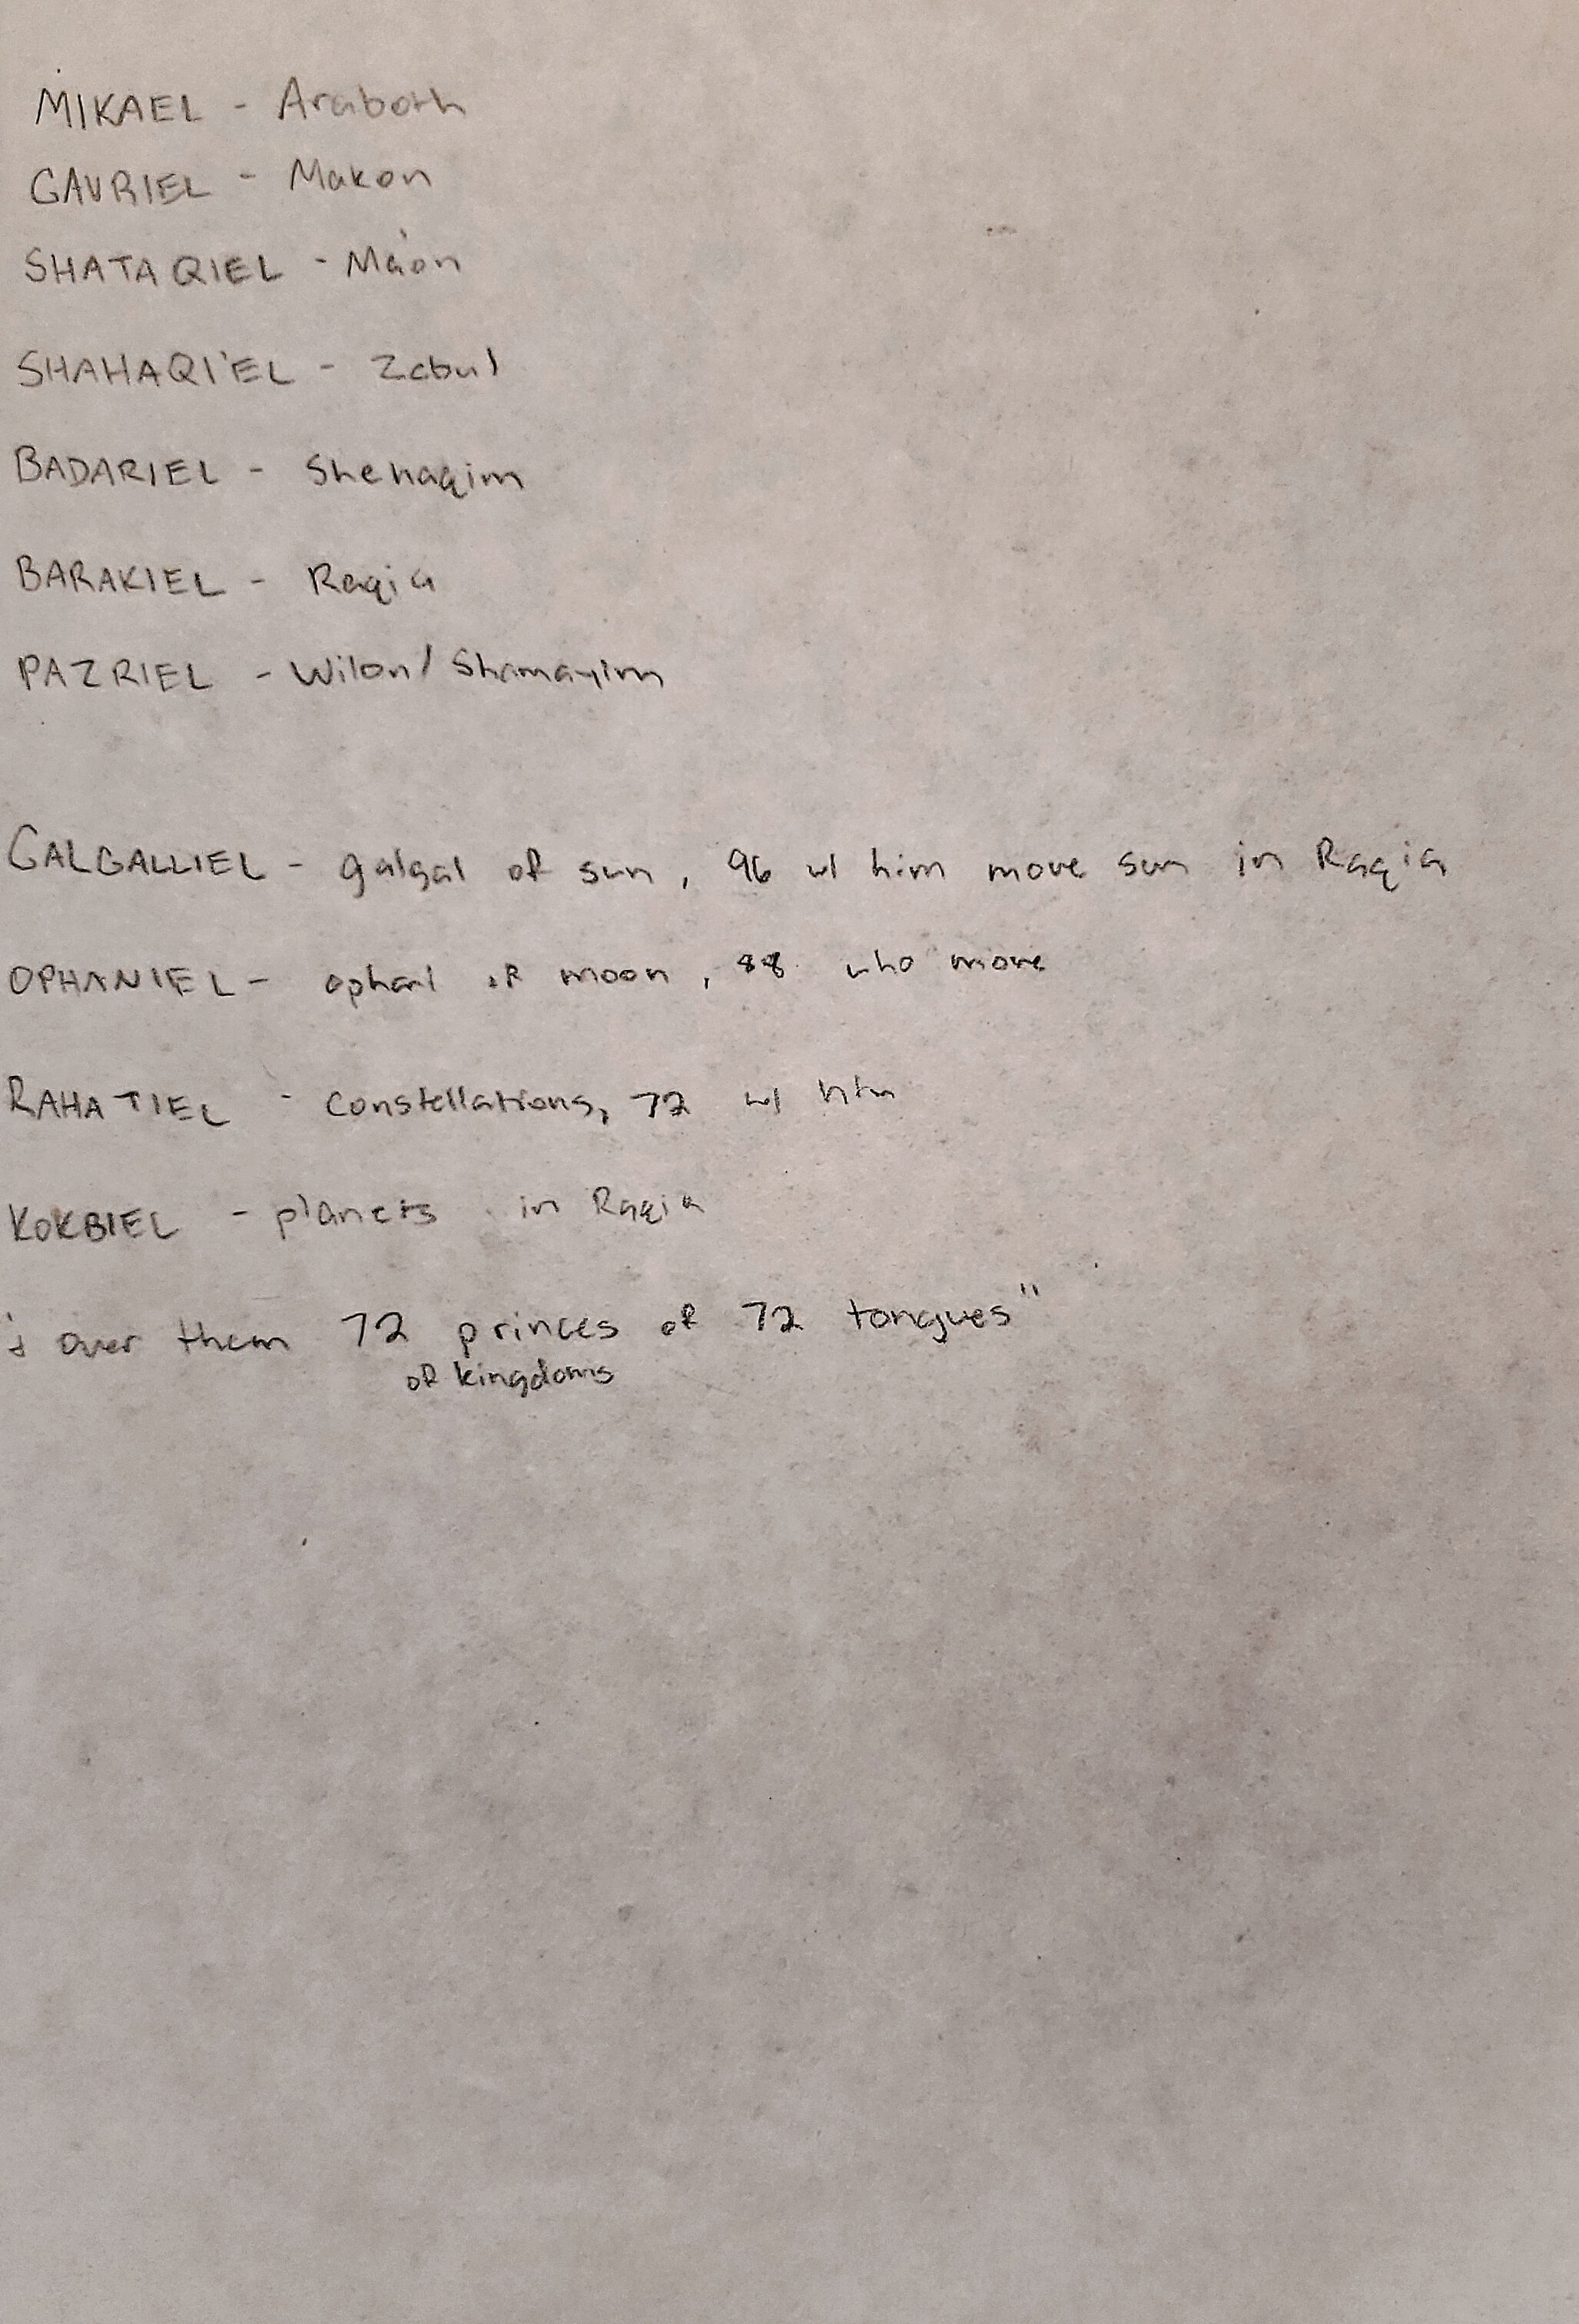 MIKAEL - Araboth
GAVRIEL - Makon
SHATAQIEL - Ma'on
SHAHAQI'EL - Zebul
BADARIEL - Shehaqim
BARAKIEL - Raqia
PAZRIEL - Wilon/Shamayim
GALGALLIEL - galgal of sun, 96 w/ him move sun in Raqia
OPHANIEL - of moon, 88 who move
RAHATIEL - constellations, 72 w/ him
KOKBIEL - planets in Raqia
over them 72 princes of 72 tongues"
of kingdoms